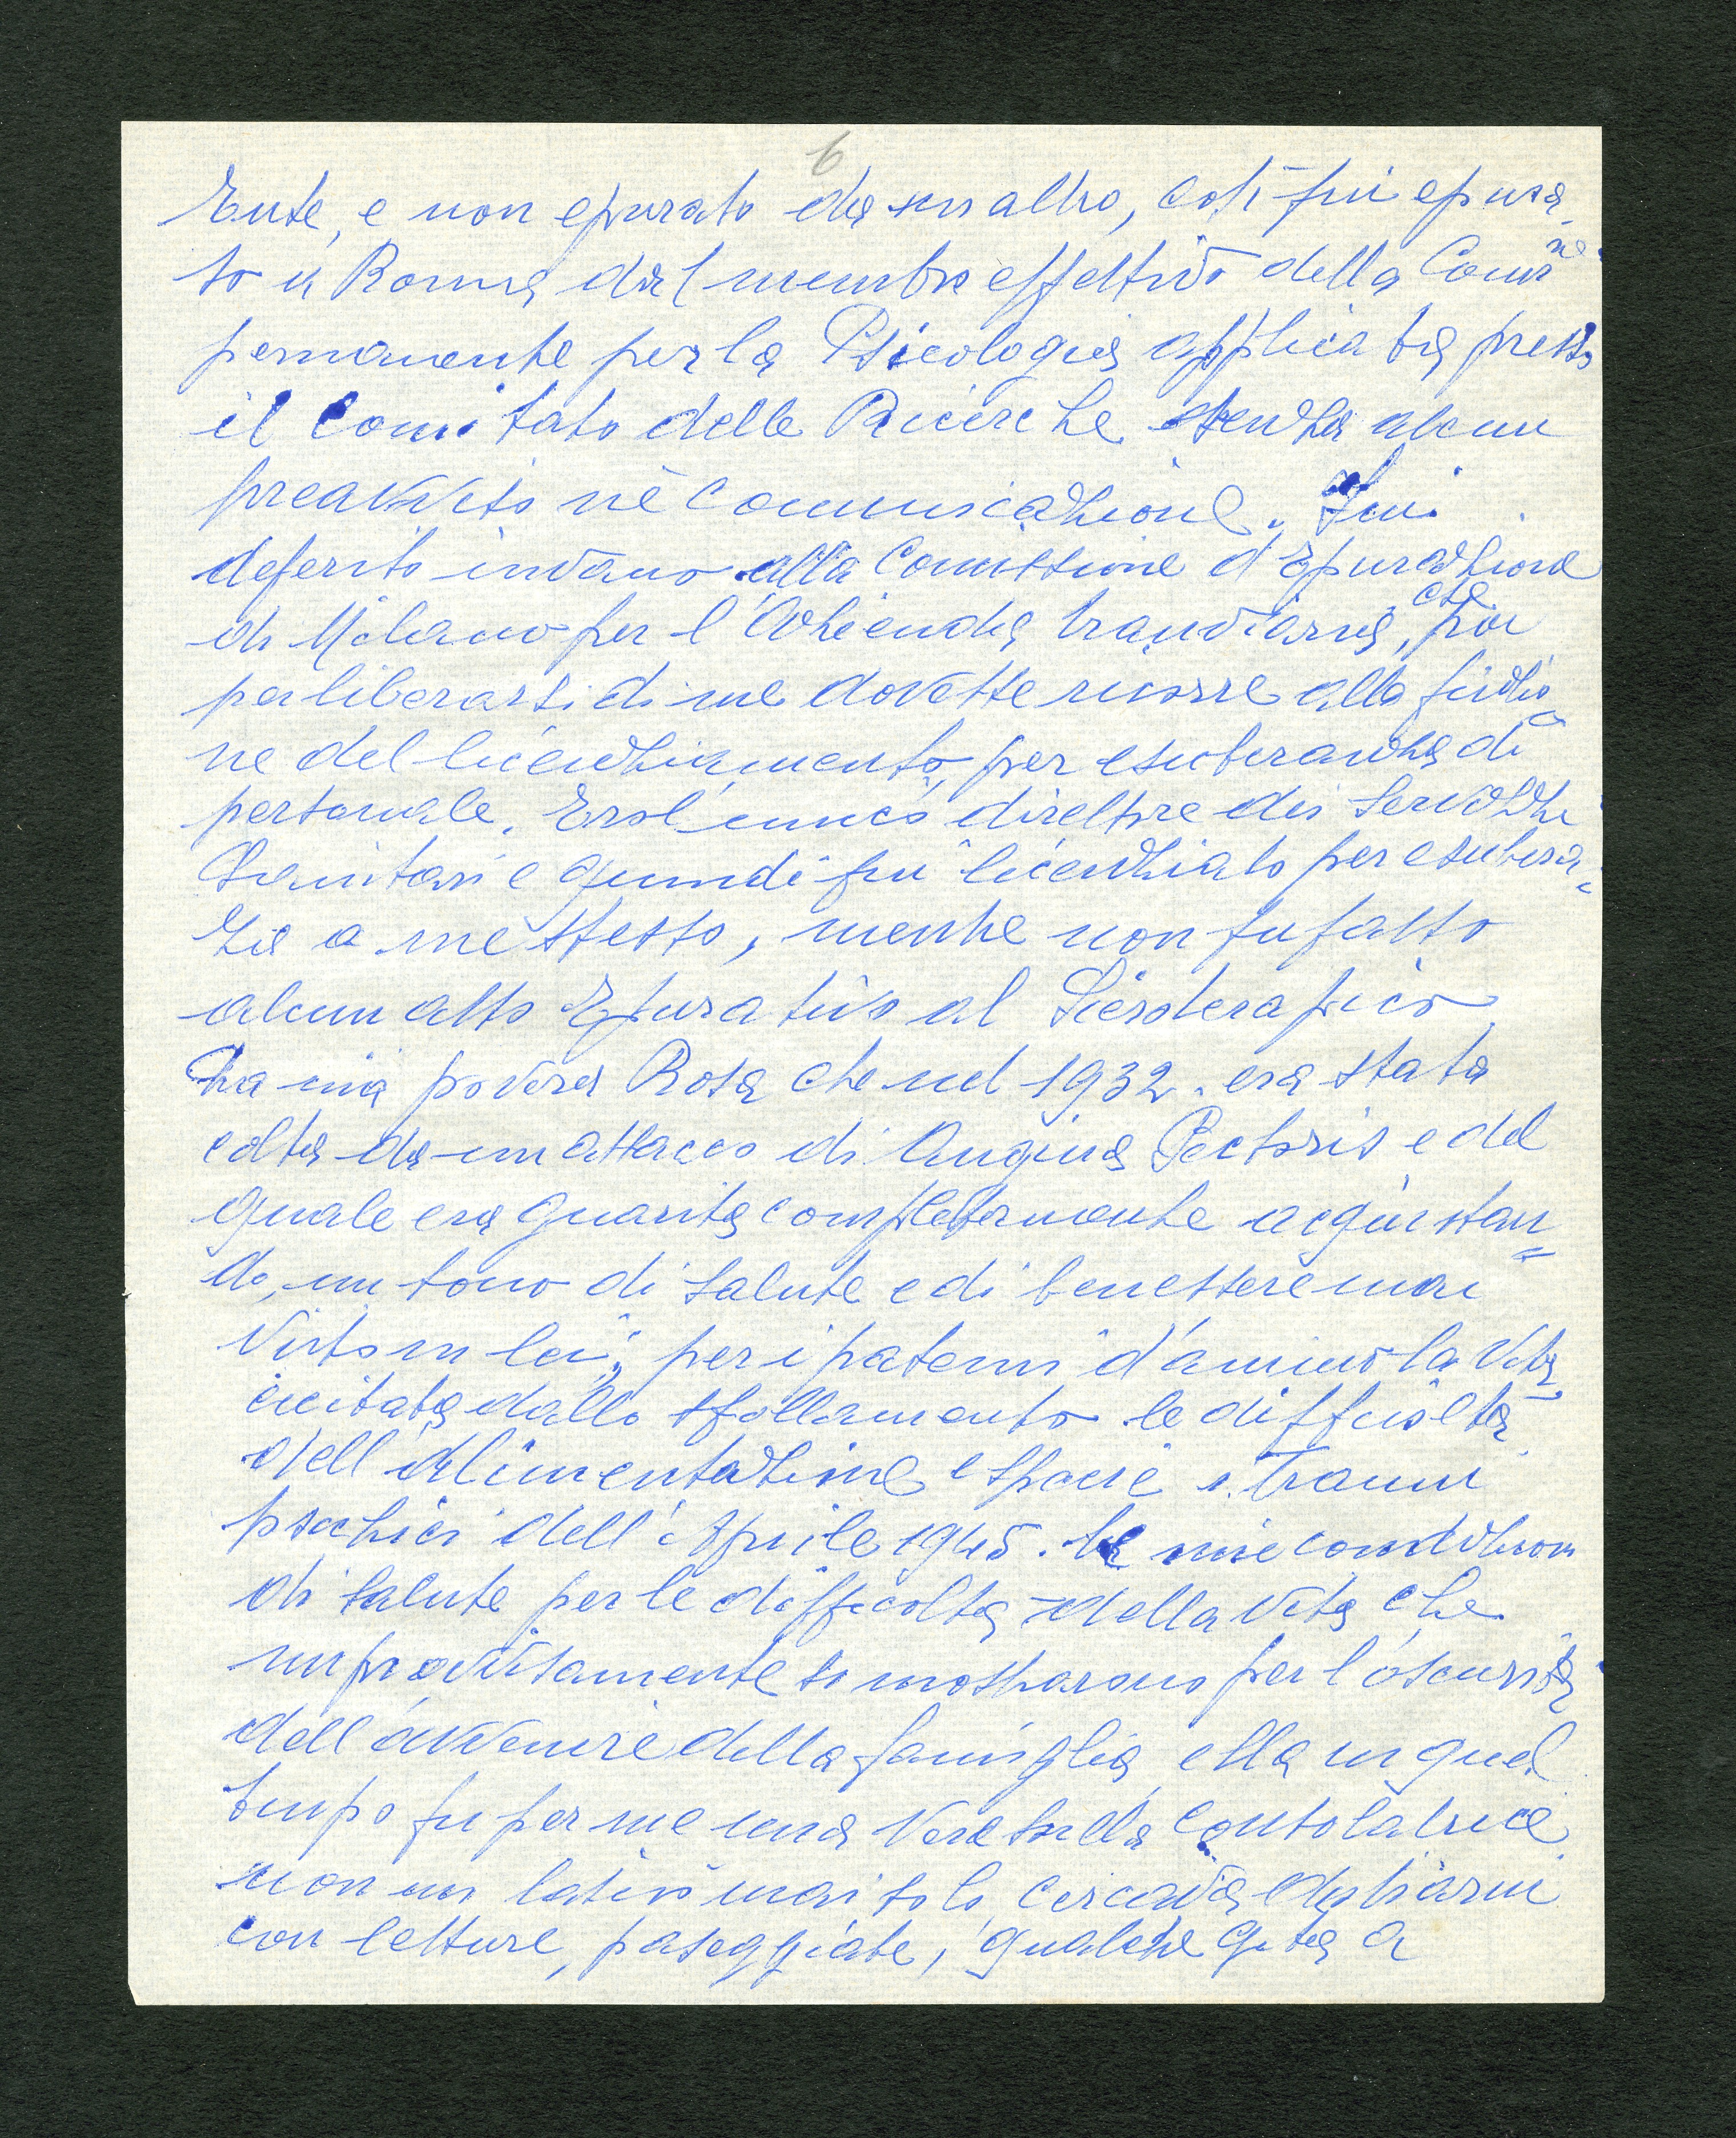 6
Ente, e non epurato da un altro, così fui epura-
to a Roma dal membro effettivo della Com.ne
permanente per la Psicologia applicata presso
il Comitato delle Ricerche senza alcun
preavviso nè comunicazione. Fui
deferito invano alla Comissione d'Epurazione
di Milano per l'Azienda tranviaria, che poi
per liberarsi di me dovette ricorre alla finzio-
ne del licenziamento per esuberanza di
personale. Ero l'unico direttore dei Servizi
Sanitari e quindi fui licenziato per esubera-
za a me stesso, mentre non fu fatto
alcun atto Epurativo al Sieroterapico
La mia povera Rosa che nel 1932 era stata
colta da un attacco di Angina Pectoris e del
quale era guarita completamente acquistan=
do, un tono di salute e di benessere mai
visto in lei, per i patemi d'animo la vita
dallo sfollamento le difficoltà
dell'alimentazione e specie i traumi
psichici dell'Aprile 1945. Le mie condizioni
di salute per le difficoltà della vita che
improvvisamente si mostrarono per l'oscurità
dell'avvenire della famiglia, ella in quel
tempo fu per me una vera sorella consolatrice
non mi lasciò mai solo, cercava distrarmi
con letture, paseggiate, qualche gita a